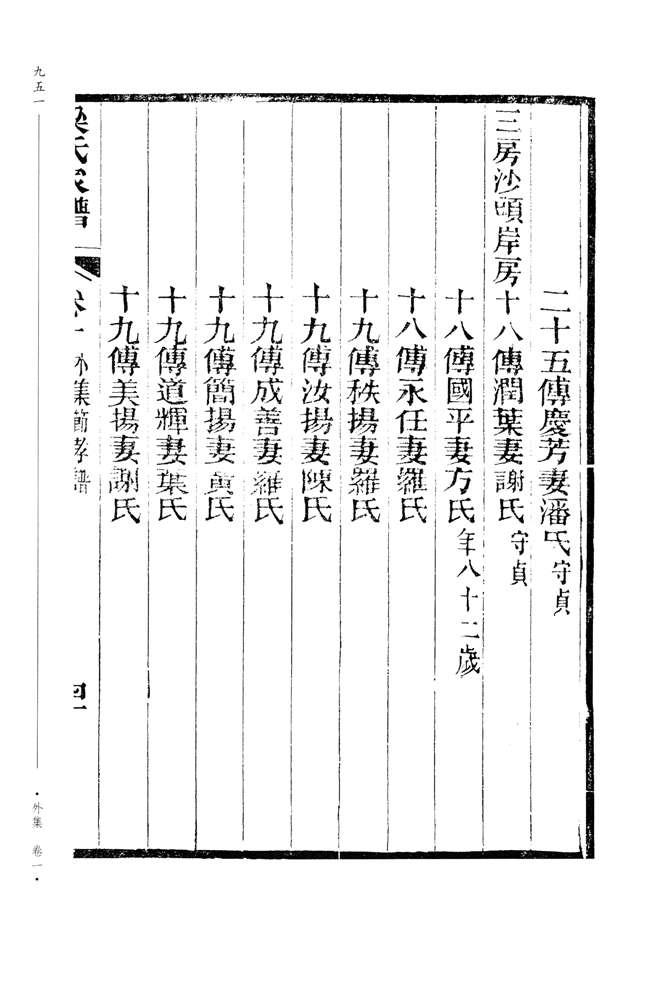 二十五傳慶芳妻潘氏守貞
三房沙頭岸房十八傳潤葉妻謝氏守貞
十八傳國平妻方氏年八十二歲
十八傳永任妻羅氏
十九傳秩揚妻羅氏
十九傳汝揚妻陳氏
十九傳成善妻羅氏
十九傳簡揚妻黃氏
十九傳道輝妻葉氏
十九傳美揚妻謝氏
梁氏家譜
卷一 外集節孝譜
四一
九五一
·外集 卷一·